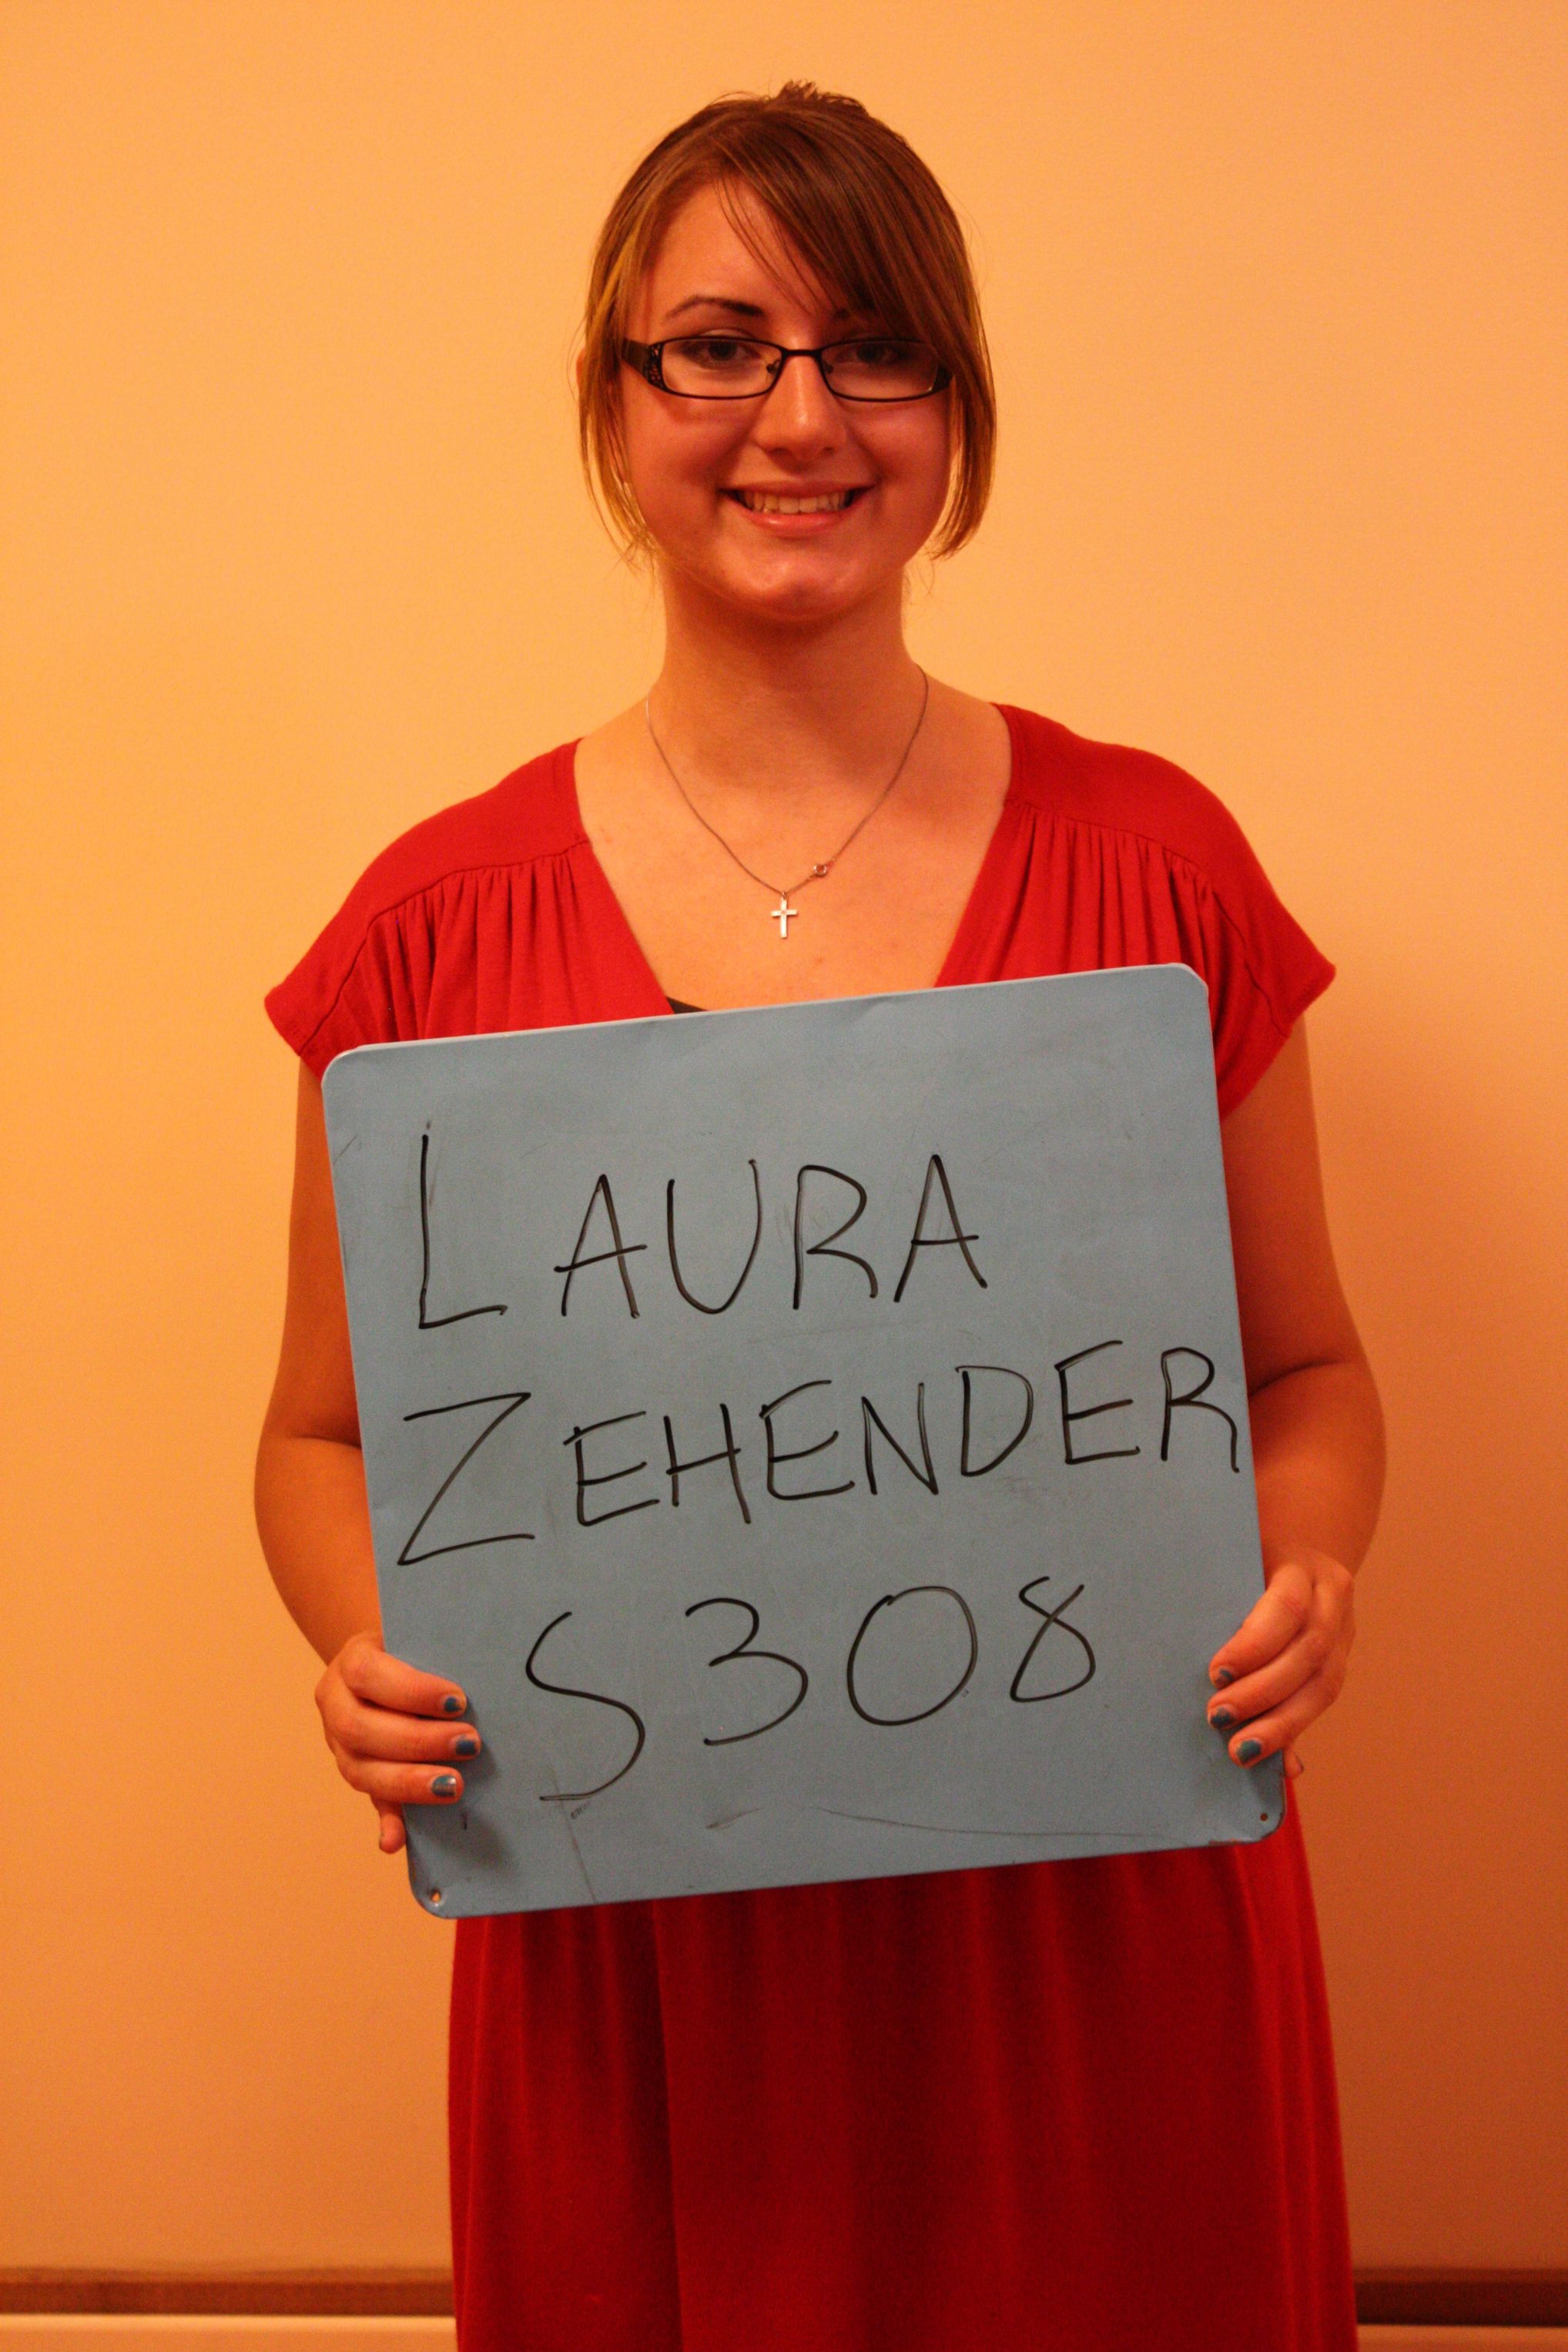 LAURA
ZEHENDER
S308